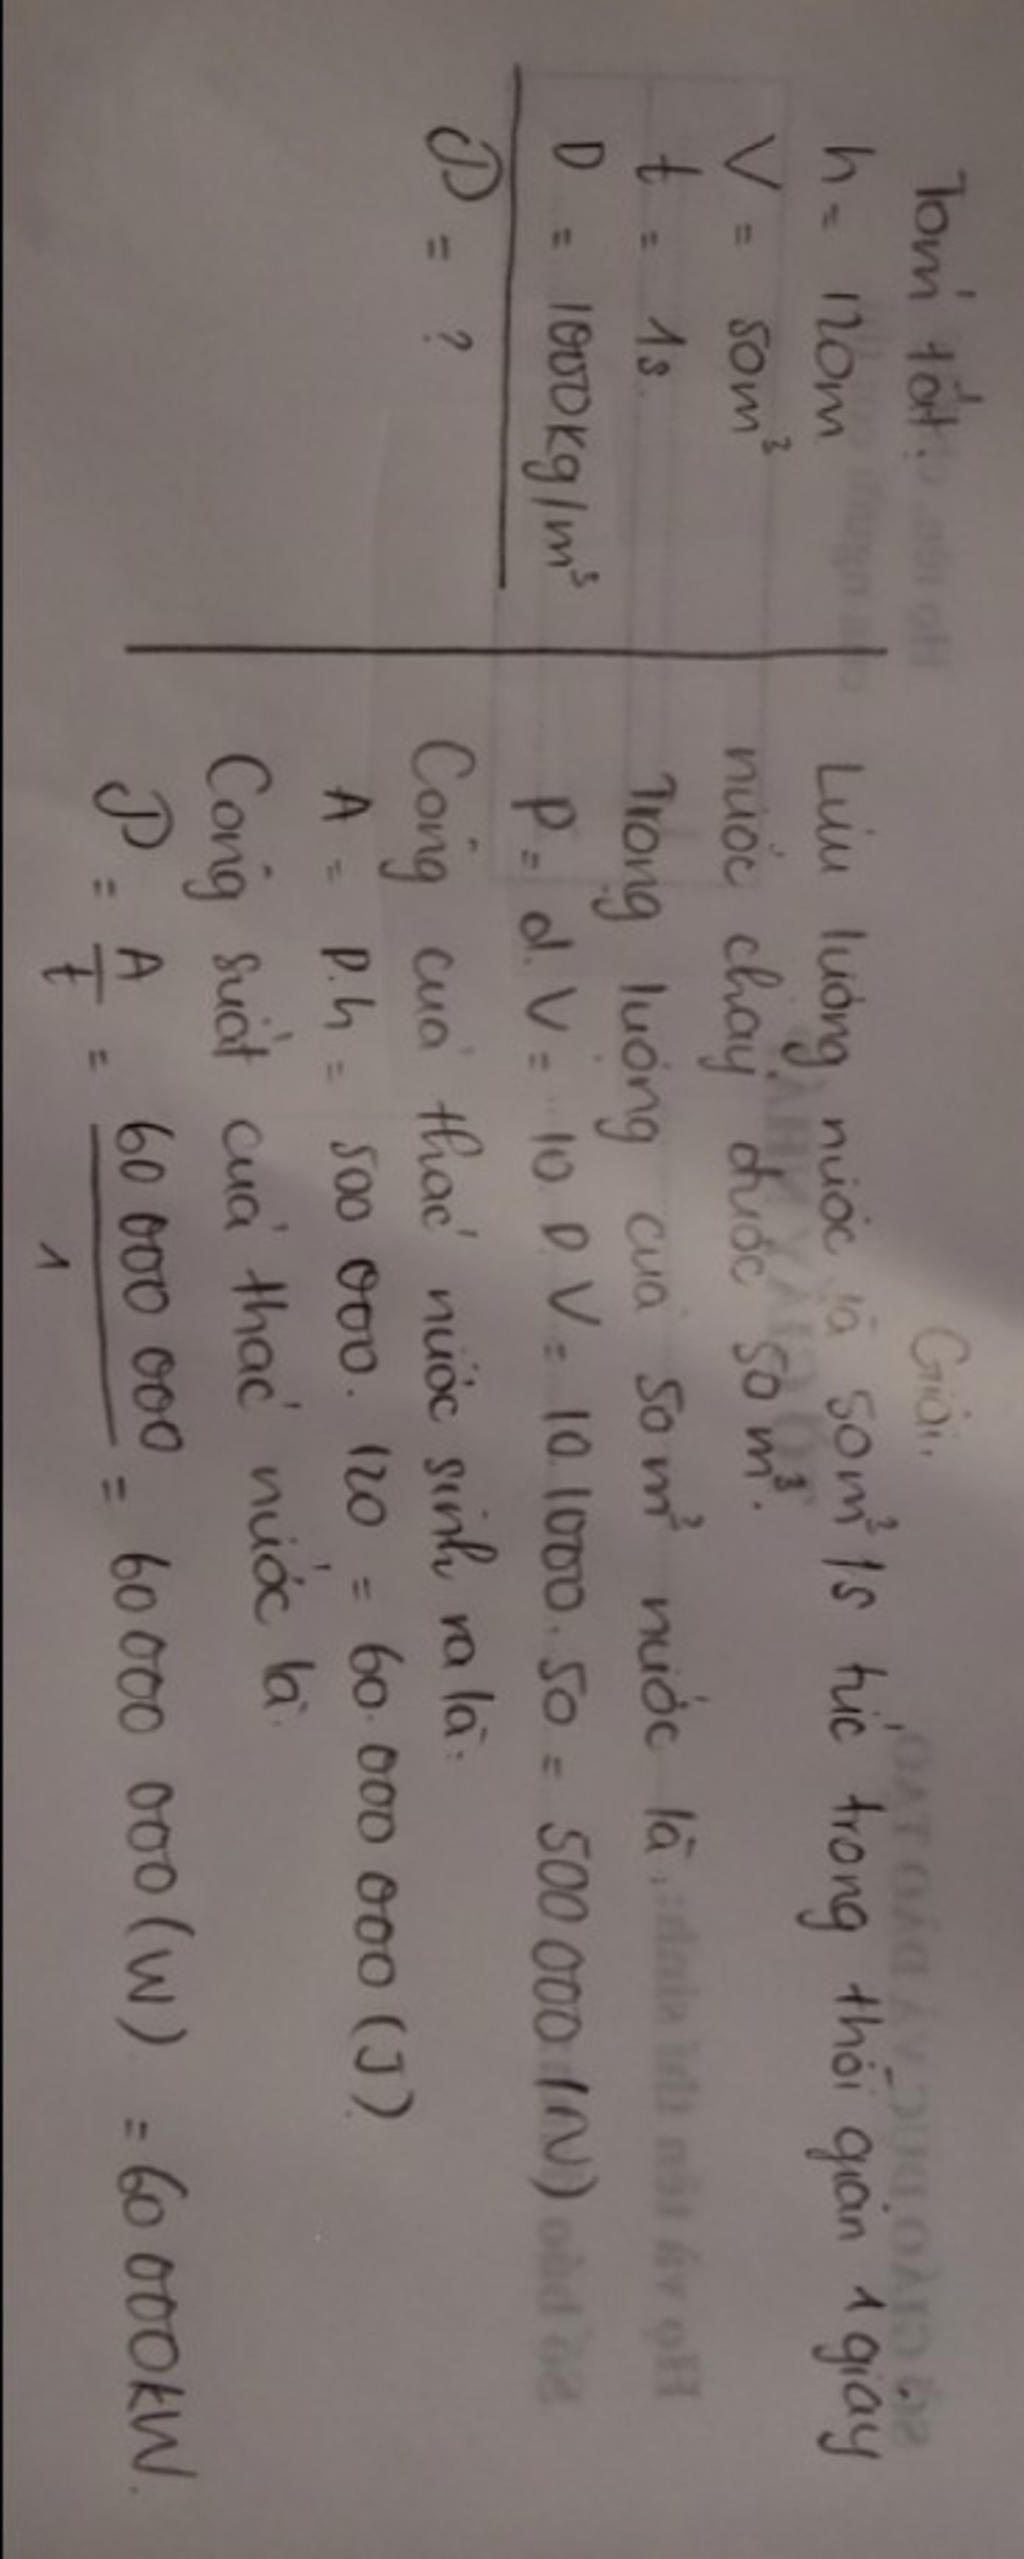 Tóm tắt.
h = 120m
V = 50m³
t = 1s.
D = 1000kg/m³
P = ?
Giải.
Lưu lượng nước là 50m³/s tức trong thời gian 1 giây
nước chảy được 50m³.
Trọng lượng của 50m³ nước là:
P = d.V = 10.D.V = 10.1000.50 = 500 000 (N)
Công của thác nước sinh ra là:
A = P.h = 500 000.120 = 60.000 000 (J)
Công suất của thác nước là:
P = A/t = 60 000 000/1 = 60 000 000 (W) = 60 000kW.